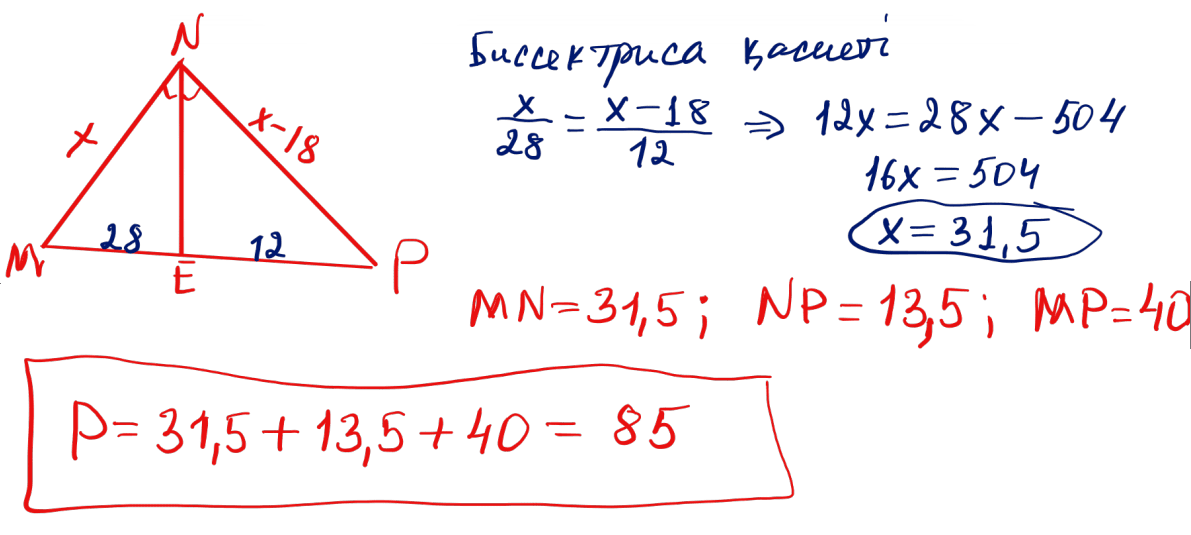 N
Биссектриса қасиеті
x
x-18
x/28 = (x-18)/12 ⇒ 12x = 28x - 504
16x = 504
x = 31,5
28
12
M
E
P
MN = 31,5 ; NP = 13,5 ; MP = 40
P = 31,5 + 13,5 + 40 = 85